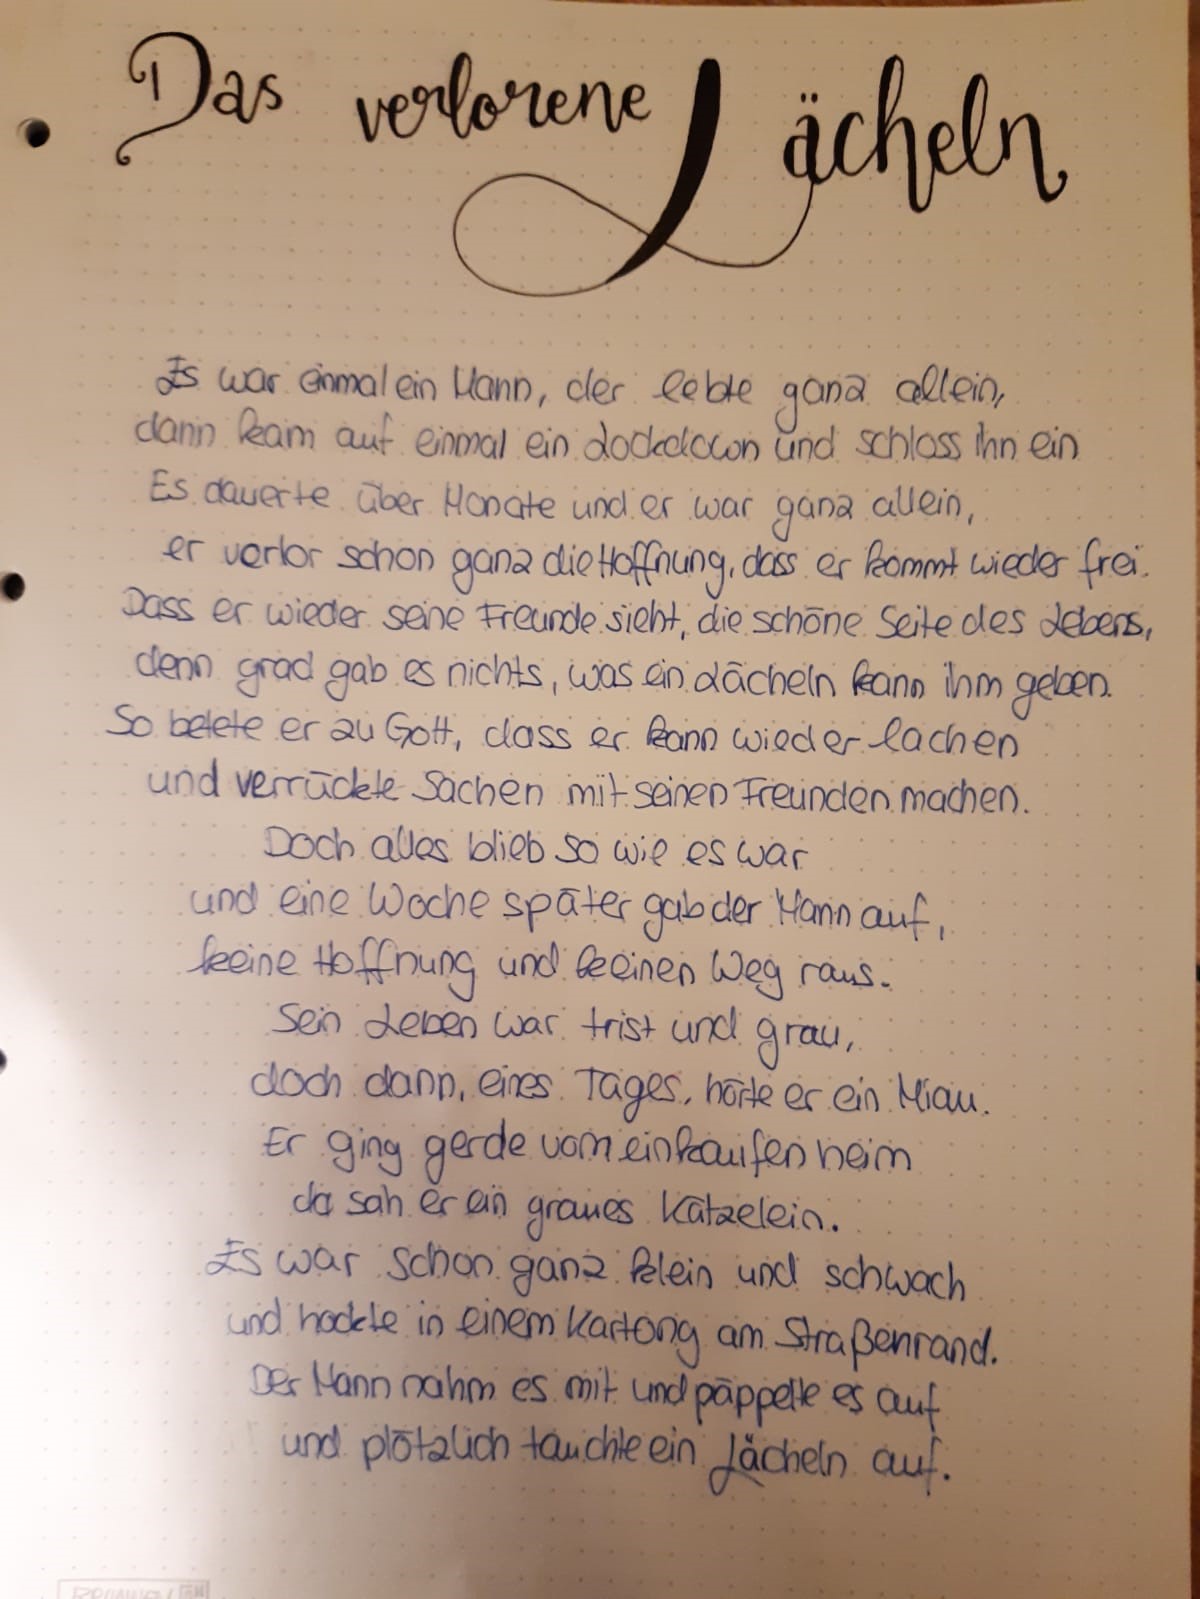 Das verlorene Lächeln
Es war einmal ein Mann, der lebte ganz allein,
dann kam auf einmal ein Lockdown und schloss ihn ein
Es dauerte über Monate und er war ganz allein,
er verlor schon ganz die Hoffnung, dass er kommt wieder frei.
Dass er wieder seine Freunde sieht, die schöne Seite des Lebens,
denn grad gab es nichts, was ein Lächeln kann ihm geben.
So betete er zu Gott, dass er kann wieder lachen
und verrückte Sachen mit seinen Freunden machen.
Doch alles blieb so wie es war
und eine Woche später gab der Mann auf,
keine Hoffnung und keinen Weg raus.
Sein Leben war trist und grau,
doch dann, eines Tages, hörte er ein Miau.
Er ging gerde vom einkaufen heim
da sah er ein graues Kätzelein.
Es war schon ganz klein und schwach
und hockte in einem Kartong am Straßenrand.
Der Mann nahm es mit und päppelte es auf
und plötzlich tauchte ein Lächeln auf.